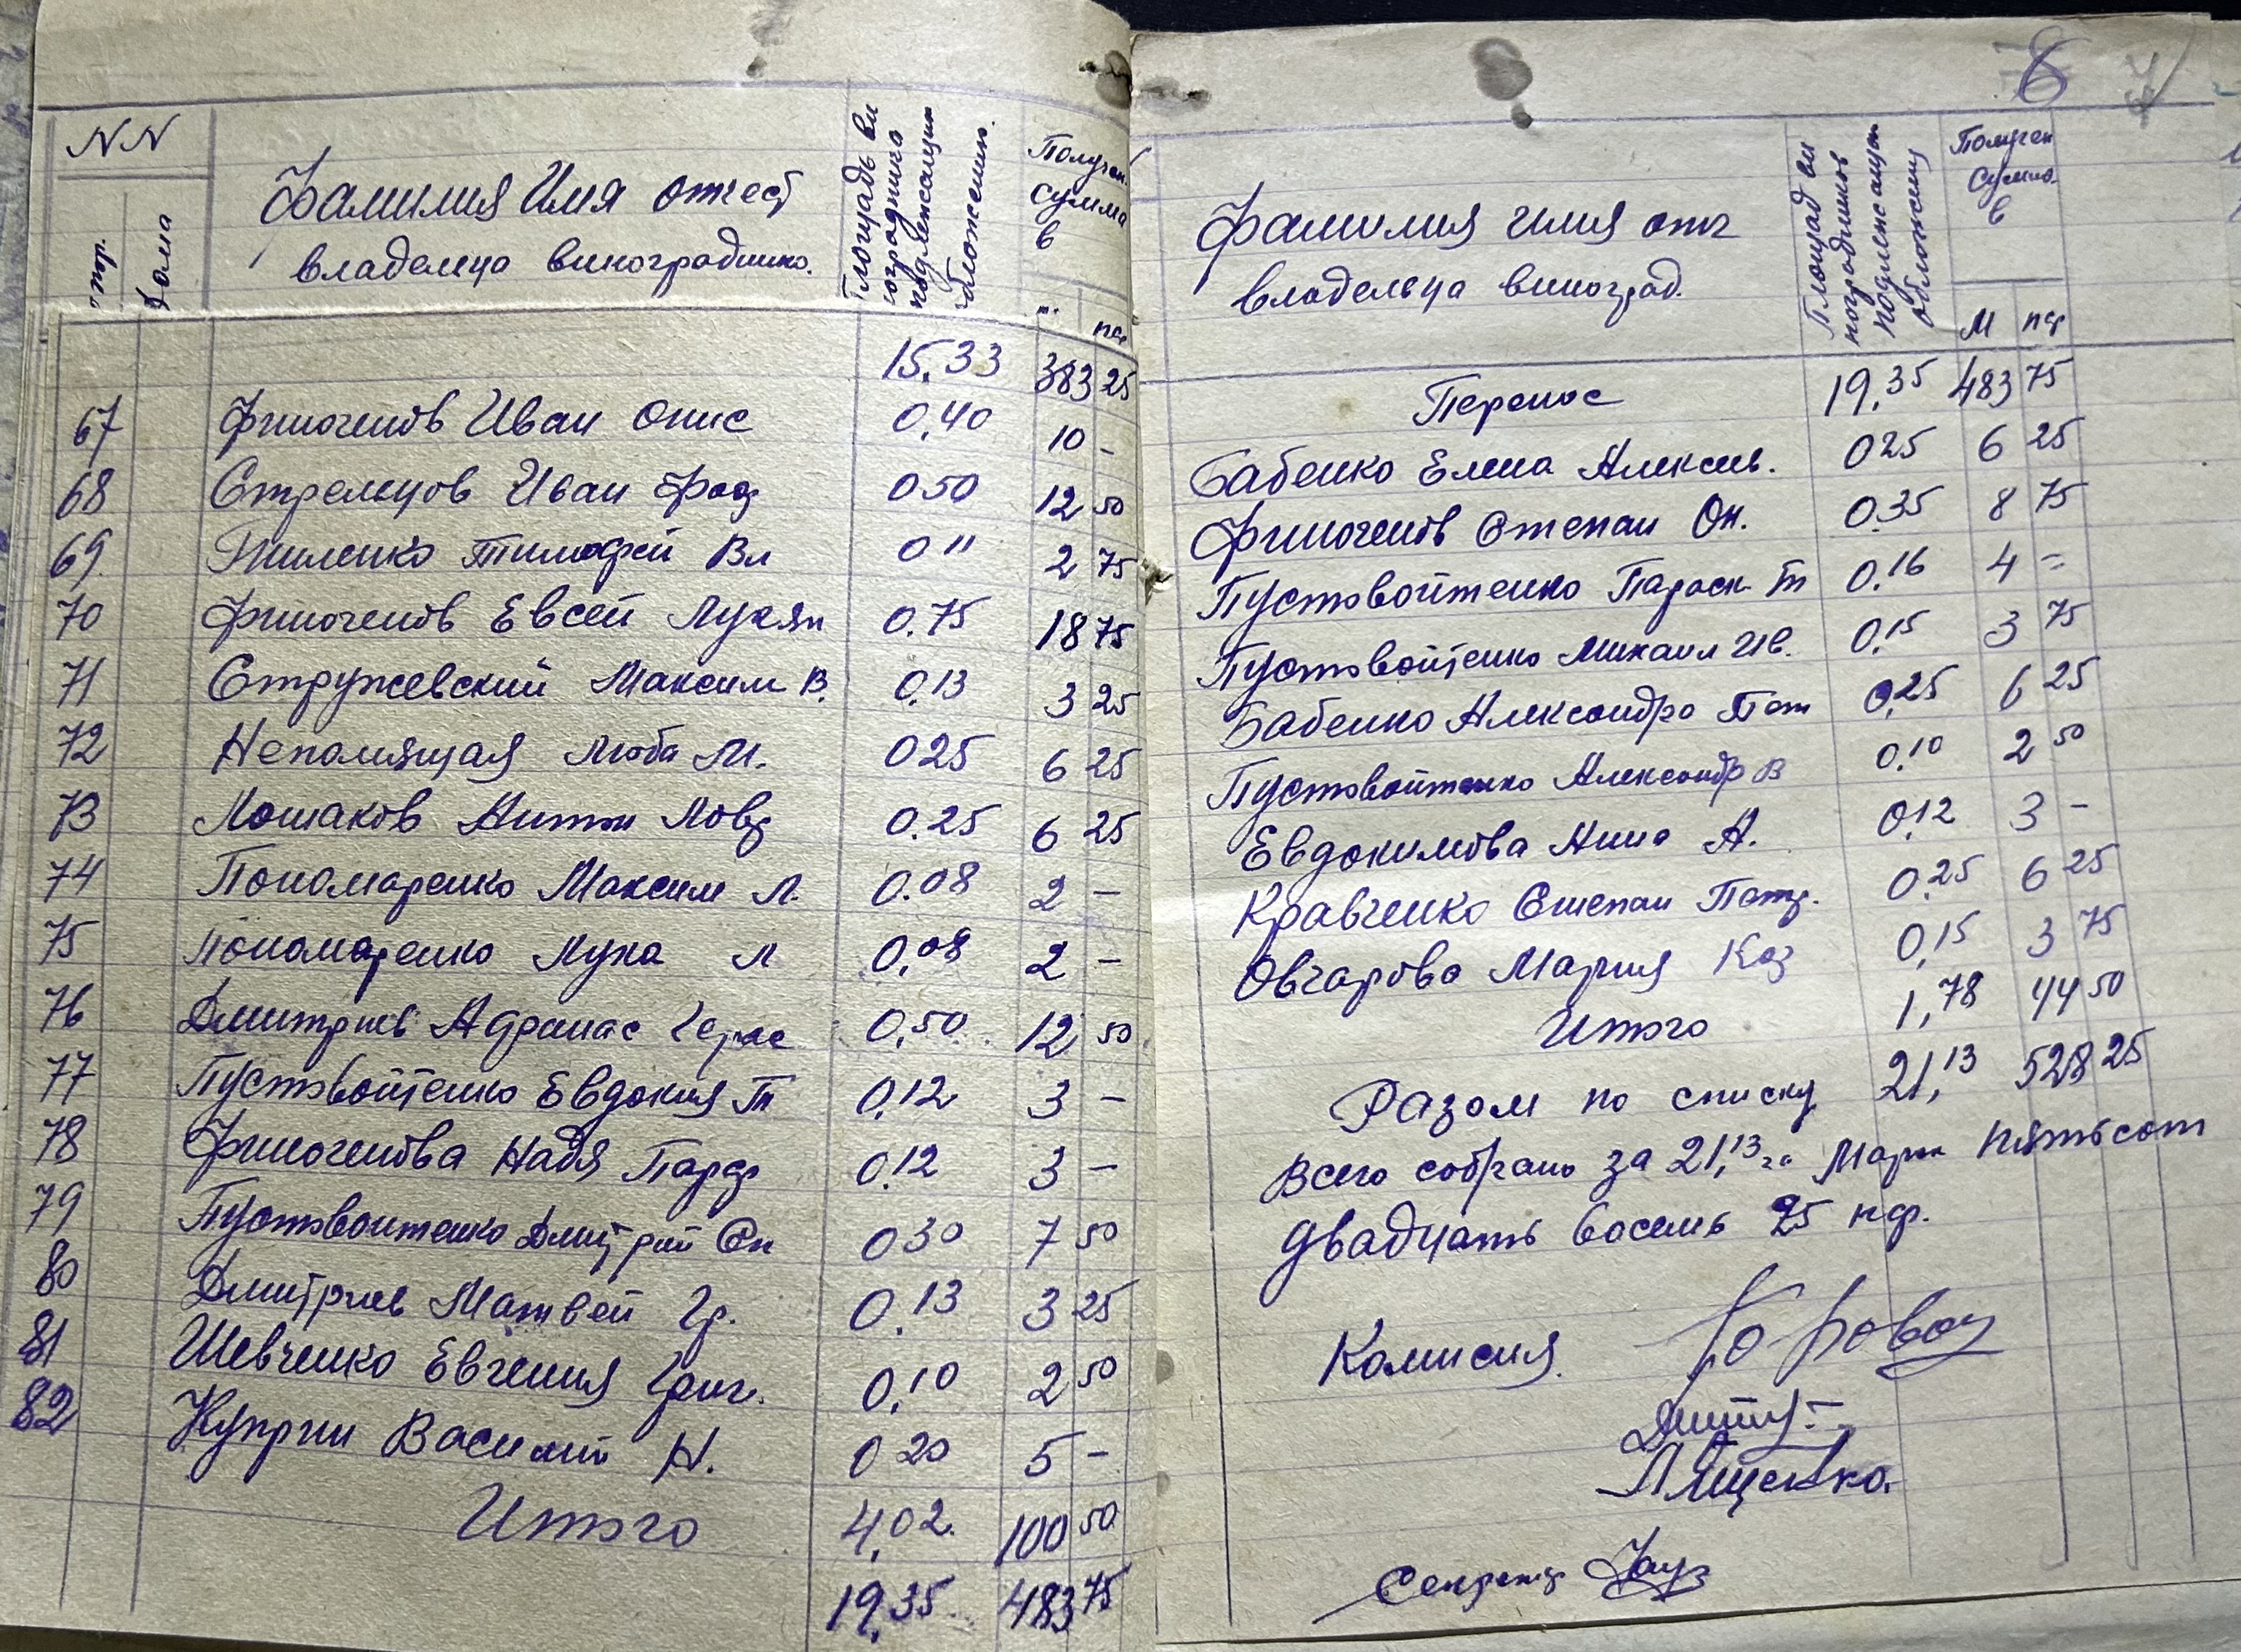 NN
Фамилия Имя отчест
владельца виноградника.
дома
Площадь ви
ноградника
подлежащих
обложению.
Получен.
сумма
в
м. пф
15.33 383 25
67 Филоченков Иван Онис 0,40 10 -
68 Стрельцов Иван Фад 0 50 12 50
69. Тимофей Вл 0 11 2 75
70 Евсей Лукян 0.75 18 75
71 Стружевский Максим В. 0,13 3 25
72 Непомящая Люба М. 0 25 6 25
73 Лошаков Антон 0.25 6 25
74 Пономаренко Максим Л. 0.08 2 -
75 Пономаренко Лука Л 0,08 2 -
76 Дмитриев Афанас Герас 0,50 12 50
77 Пустовойтенко Евдокия Т 0,12 3 -
78 Надя Парф 0.12 3 -
79 Пустовойтенко Дмитрий 0 30 7 50
80 Дмитриев Матвей Гр. 0.13 3 25
81 Шевченко Евгения Григ. 0,10 2 50
82 Куприн Василий Н. 0 20 5 -
Итого 4,02. 100 50
19,35 483 75
8
Фамилия имя отч
владельца виноград.
Площад ви
ноградников
подлежащих
обложению
Получен
сумма.
в
М пф
Перенос 19.35 483 75
Бабенко Елена Алексев. 0 25 6 25
Степан Он. 0.35 8 75
Пустовойтенко Параск. Т 0.16 4 -
Пустовойтенко Михаил Ив. 0.15 3 75
Бабенко Александра Пет 0,25 6 25
Пустовойтенко Александр В 0.10 2 50
Евдокимова Анна А. 0,12 3 -
Кравченко Степан Петр. 0.25 6 25
Овчарова Мария Каз 0,15 3 75
Итого 1,78 44 50
Разом по списку 21,13 528 25
Всего собрано за 21,13 га Марок пятьсот
двадцать восемь 25 пф.
Комисия. Боровой
Лященко.
Секретар